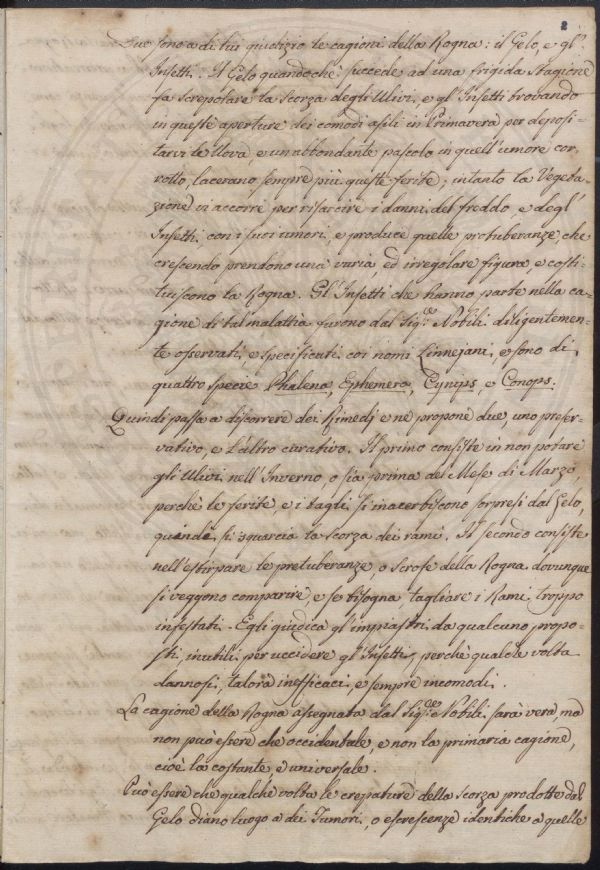 2
Due sono a di lui giudizio le cagioni della Rogna: il Gelo, e gl'
Insetti. Il Gelo quando chè succede ad una frigida Stagione
fa screpolare la scorza degli Ulivi, e gl'Insetti trovando
in queste aperture dei comodi asili in Primavera per deposi-
tarvi le Uova, e un abbondante pascolo in quell'umore cor-
rotto, lacerano sempre più queste ferite; intanto la Vegeta-
zione vi accorre per risarcire i danni del freddo, e degl'
Insetti con i suoi umori, e produce quelle protuberanze, che
crescendo prendono una varia, ed irregolare figura, e costi-
tuiscono la Rogna. Gl'Insetti che hanno parte nella ca-
gione di tal malattia furono dal Sig.re Nobili diligentemen-
te osservati, e specificati coi nomi Linnejani, e sono di
quattro specie Phalena, Ephemera, Cynips, e Conops.
Quindi passa a discorrere dei Rimedj e ne propone due, uno preser-
vativo, e l'altro curativo. Il primo consiste in non potare
gli Ulivi nell'Inverno, o sia prima del Mese di Marzo,
perchè le ferite, e i tagli si inacerbiscono sorpresi dal Gelo,
quindi, si squarcia la scorza dei rami. Il secondo consiste
nell'estirpare le pretuberanze, o Scrofe della Rogna dovunque
si veggono comparire, e se bisogna, tagliare i Rami troppo
infestati. Egli giudica gl'impiastri da qualcuno propo-
sti, inutili per uccidere gl'Insetti, perchè qualche volta
dannosi, talora inefficaci, e sempre incomodi.
La cagione della Rogna assegnata dal Sig.re Nobili sarà vera, ma
non può essere che occidentale, e non la primaria cagione,
cioè la costante, e universale.
Può essere che qualche volta le crepature della scorza prodotte dal
Gelo diano luogo a dei Tumori, o escrescenze identiche a quelle